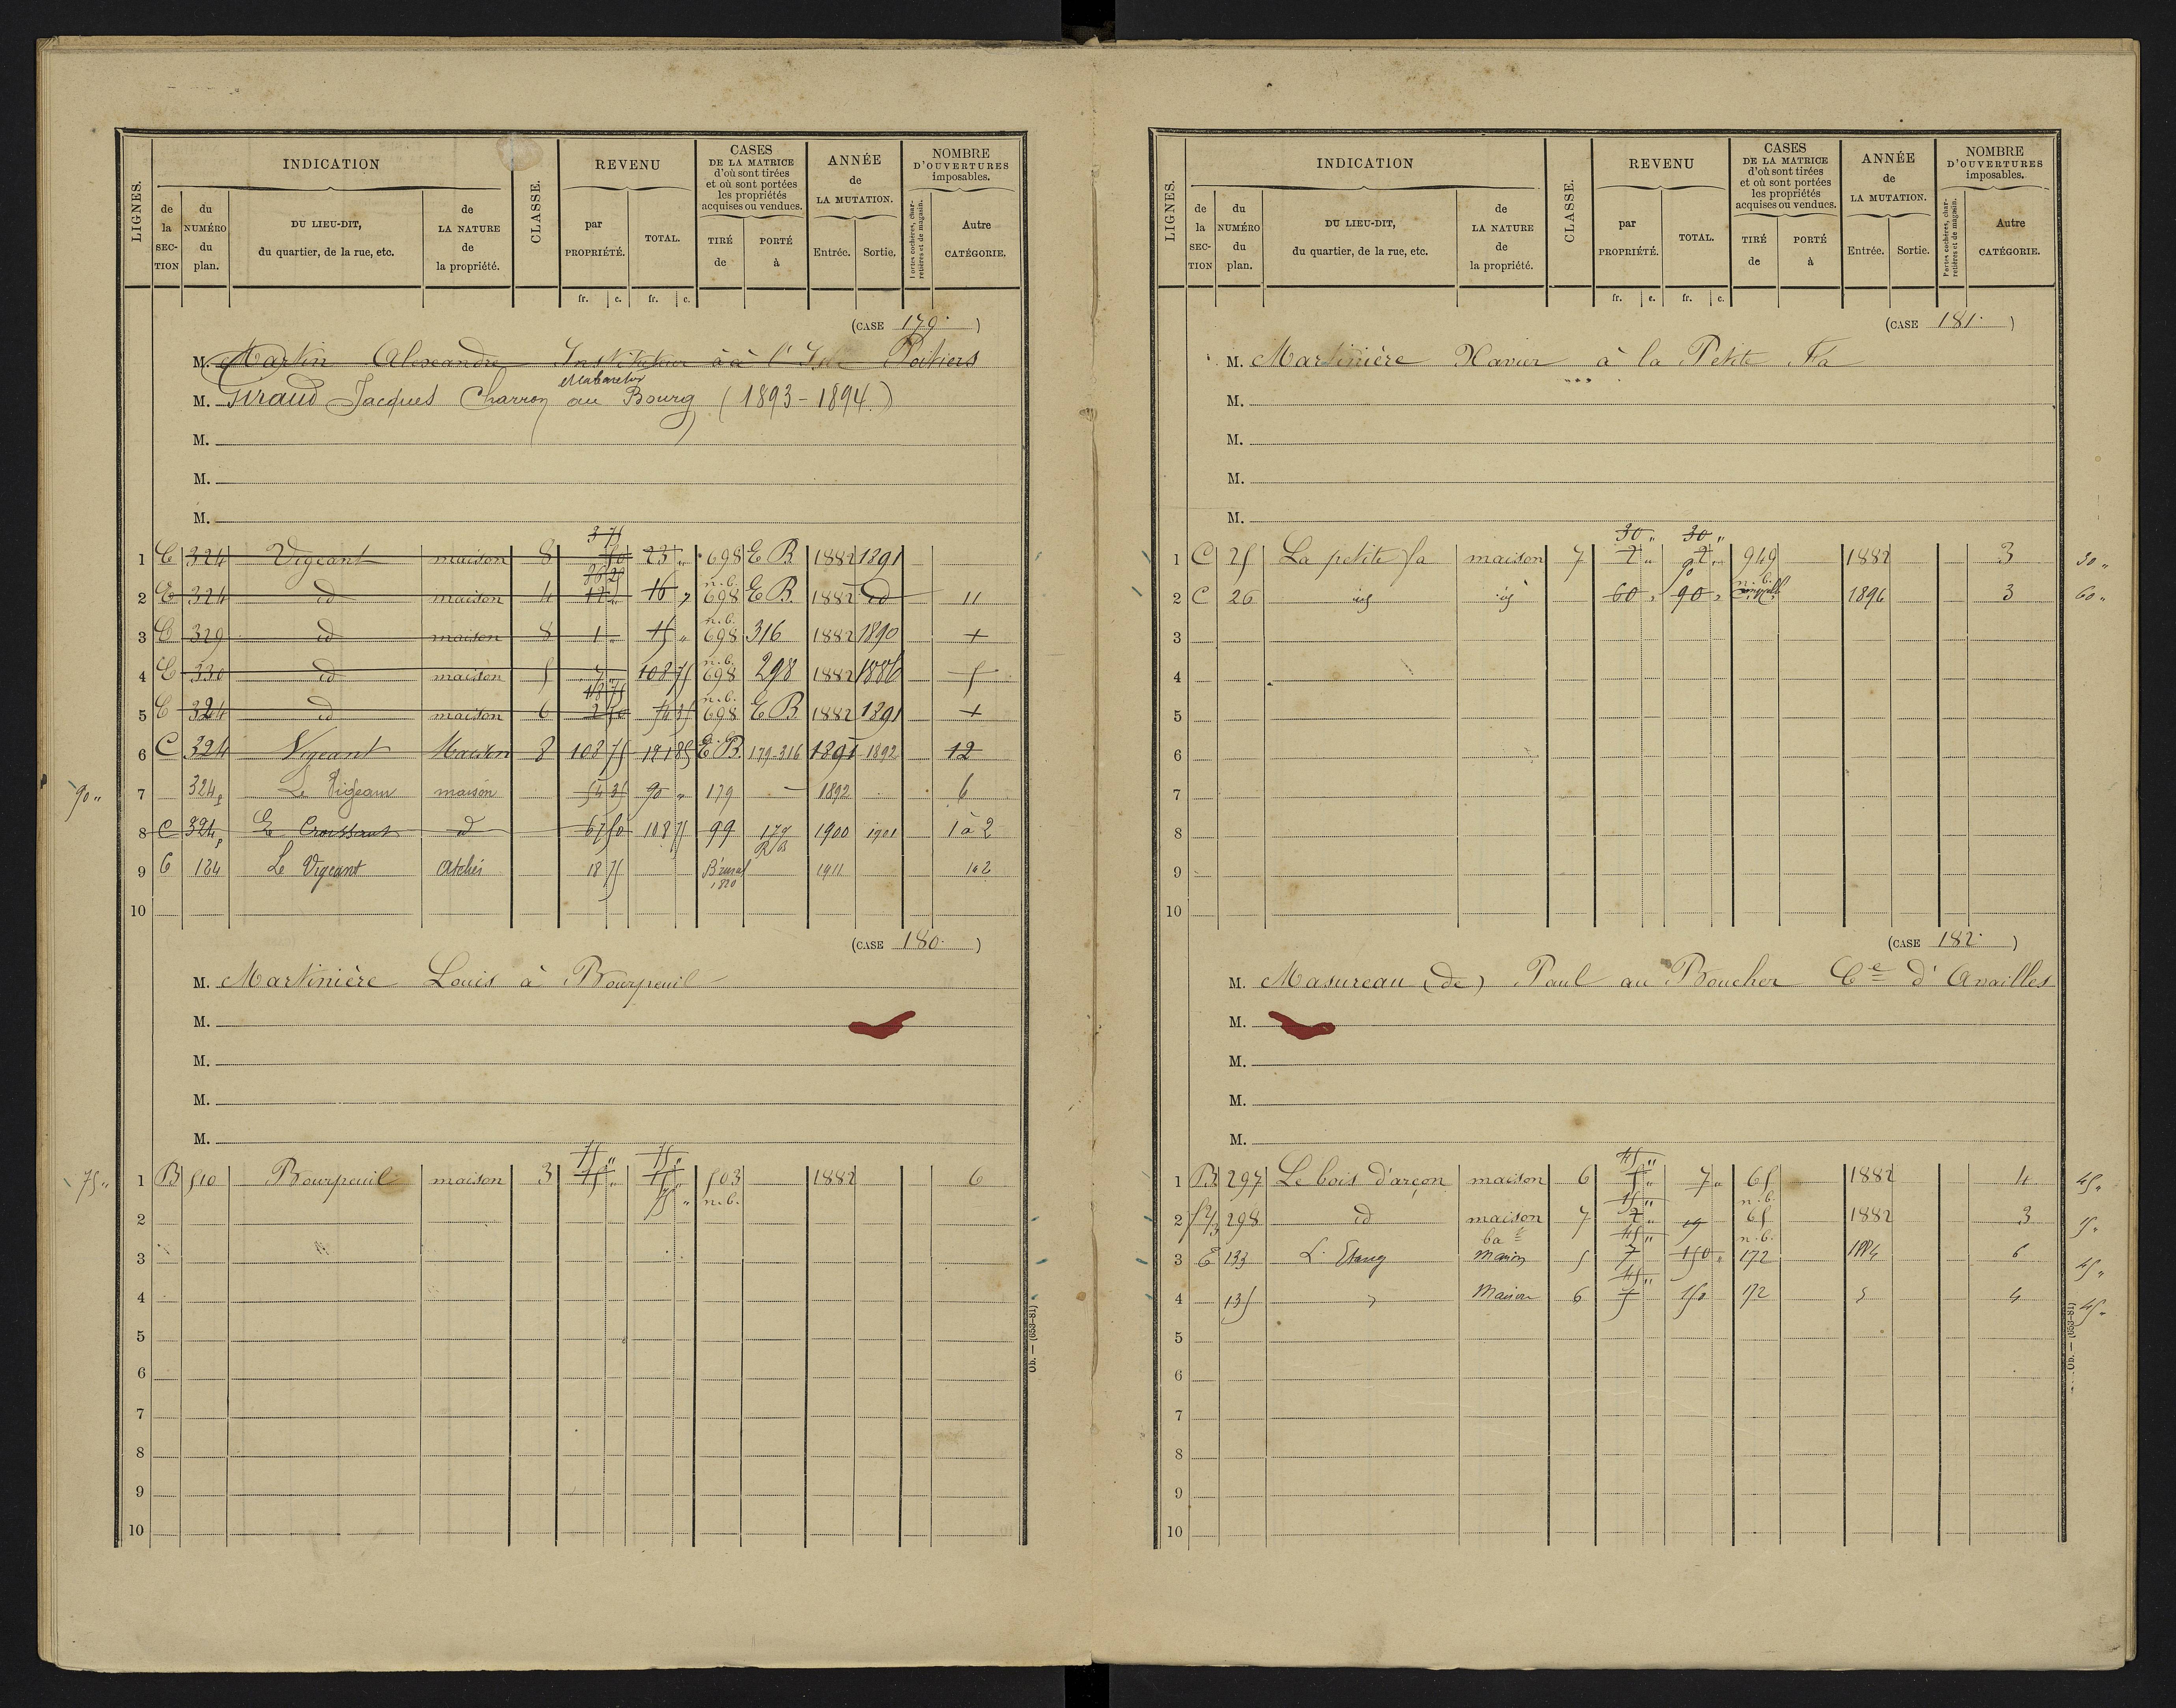 LIGNES.
INDICATION
de la SECTION
du NUMÉRO du plan.
DU LIEU-DIT, du quartier, de la rue, etc.
de LA NATURE de la propriété.
CLASSE.
REVENU
par PROPRIÉTÉ.
TOTAL.
fr. c. fr. c.
CASES DE LA MATRICE d'où sont tirées et où sont portées les propriétés acquises ou vendues.
TIRÉ de
PORTÉ à
ANNÉE de LA MUTATION.
Entrée. Sortie.
NOMBRE D'OUVERTURES imposables.
Portes cochères, charretières et de magasin.
Autre CATÉGORIE.
(CASE 179.)
M. Martin Alexandre Instituteur à à l'Isle Poitiers
M. Giraud Jacques Charron au Bourg (1893-1894)
M.
M.
M.
3 75
1 C 324 Vigeant maison 8 50 23 " 698 E B 1882 1891
n.b.
2 C 324 id maison 4 12 " 16 " 698 E B. 1882 id 11
n.b.
3 C 329 id maison 8 1 " 15 " 698 316 1882 1890 +
n.b.
4 C 330 id maison 5 7 " 108 75 698 298 1882 1886 5
48 75 n.b.
5 C 324 id maison 6 2 50 54 35 698 E B 1882 1891 +
6 C 324 Vigeant Maison 8 108 75 121 85 E B. 179-316 1891 1892 12
90 "
7 324p Le Vigeant maison 54 35 90 " 179 1892 6
8 C 324p Le Croissant id 67 50 108 75 99 179 1900 1901 1 à 2
9 C 124 Le Vigeant Atelier 18 75 1820 1911 1 à 2
10
(CASE 180.)
M. Martinière Louis à Bourpeuil
M.
M.
M.
M.
75 " 75 "
75 "
1 B 510 Bourpeuil maison 3 15 " 15 " 503 1882 6
75 " n.b.
2
3
4
5
6
7
8
9
10
Ob. — (653-81)
LIGNES.
INDICATION
de la SECTION
du NUMÉRO du plan.
DU LIEU-DIT, du quartier, de la rue, etc.
de LA NATURE de la propriété.
CLASSE.
REVENU
par PROPRIÉTÉ.
TOTAL.
fr. c. fr. c.
CASES DE LA MATRICE d'où sont tirées et où sont portées les propriétés acquises ou vendues.
TIRÉ de
PORTÉ à
ANNÉE de LA MUTATION.
Entrée. Sortie.
NOMBRE D'OUVERTURES imposables.
Portes cochères, charretières et de magasin.
Autre CATÉGORIE.
(CASE 181.)
M. Martinière Xavier à la Petite Fa
M.
M.
M.
M.
30 " 30 "
1 C 25 La petite fa maison 7 2 " 2 " 949 1882 3 30 "
90 n.b.
2 C 26 id id 60 " 90 " 1896 3 60 "
3
4
5
6
7
8
9
10
(CASE 182.)
M. Masureau (de) Paul au Boucher Cⁿᵉ d'Availles
M.
M.
M.
M.
45 "
1 B 297 Le bois d'arçon maison 6 5 " 7 " 65 1882 4 45 "
15 " n.b.
2 298 id maison 7 2 " 19 65 1882 3 15 "
45 " n.b.
3 E 133 L'Etang Maison 5 7 150 " 172 1884 6 45 "
45 "
4 135 " Maison 6 5 150 172 " 4 45 "
5
6
7
8
9
10
Ob. — (653-81)